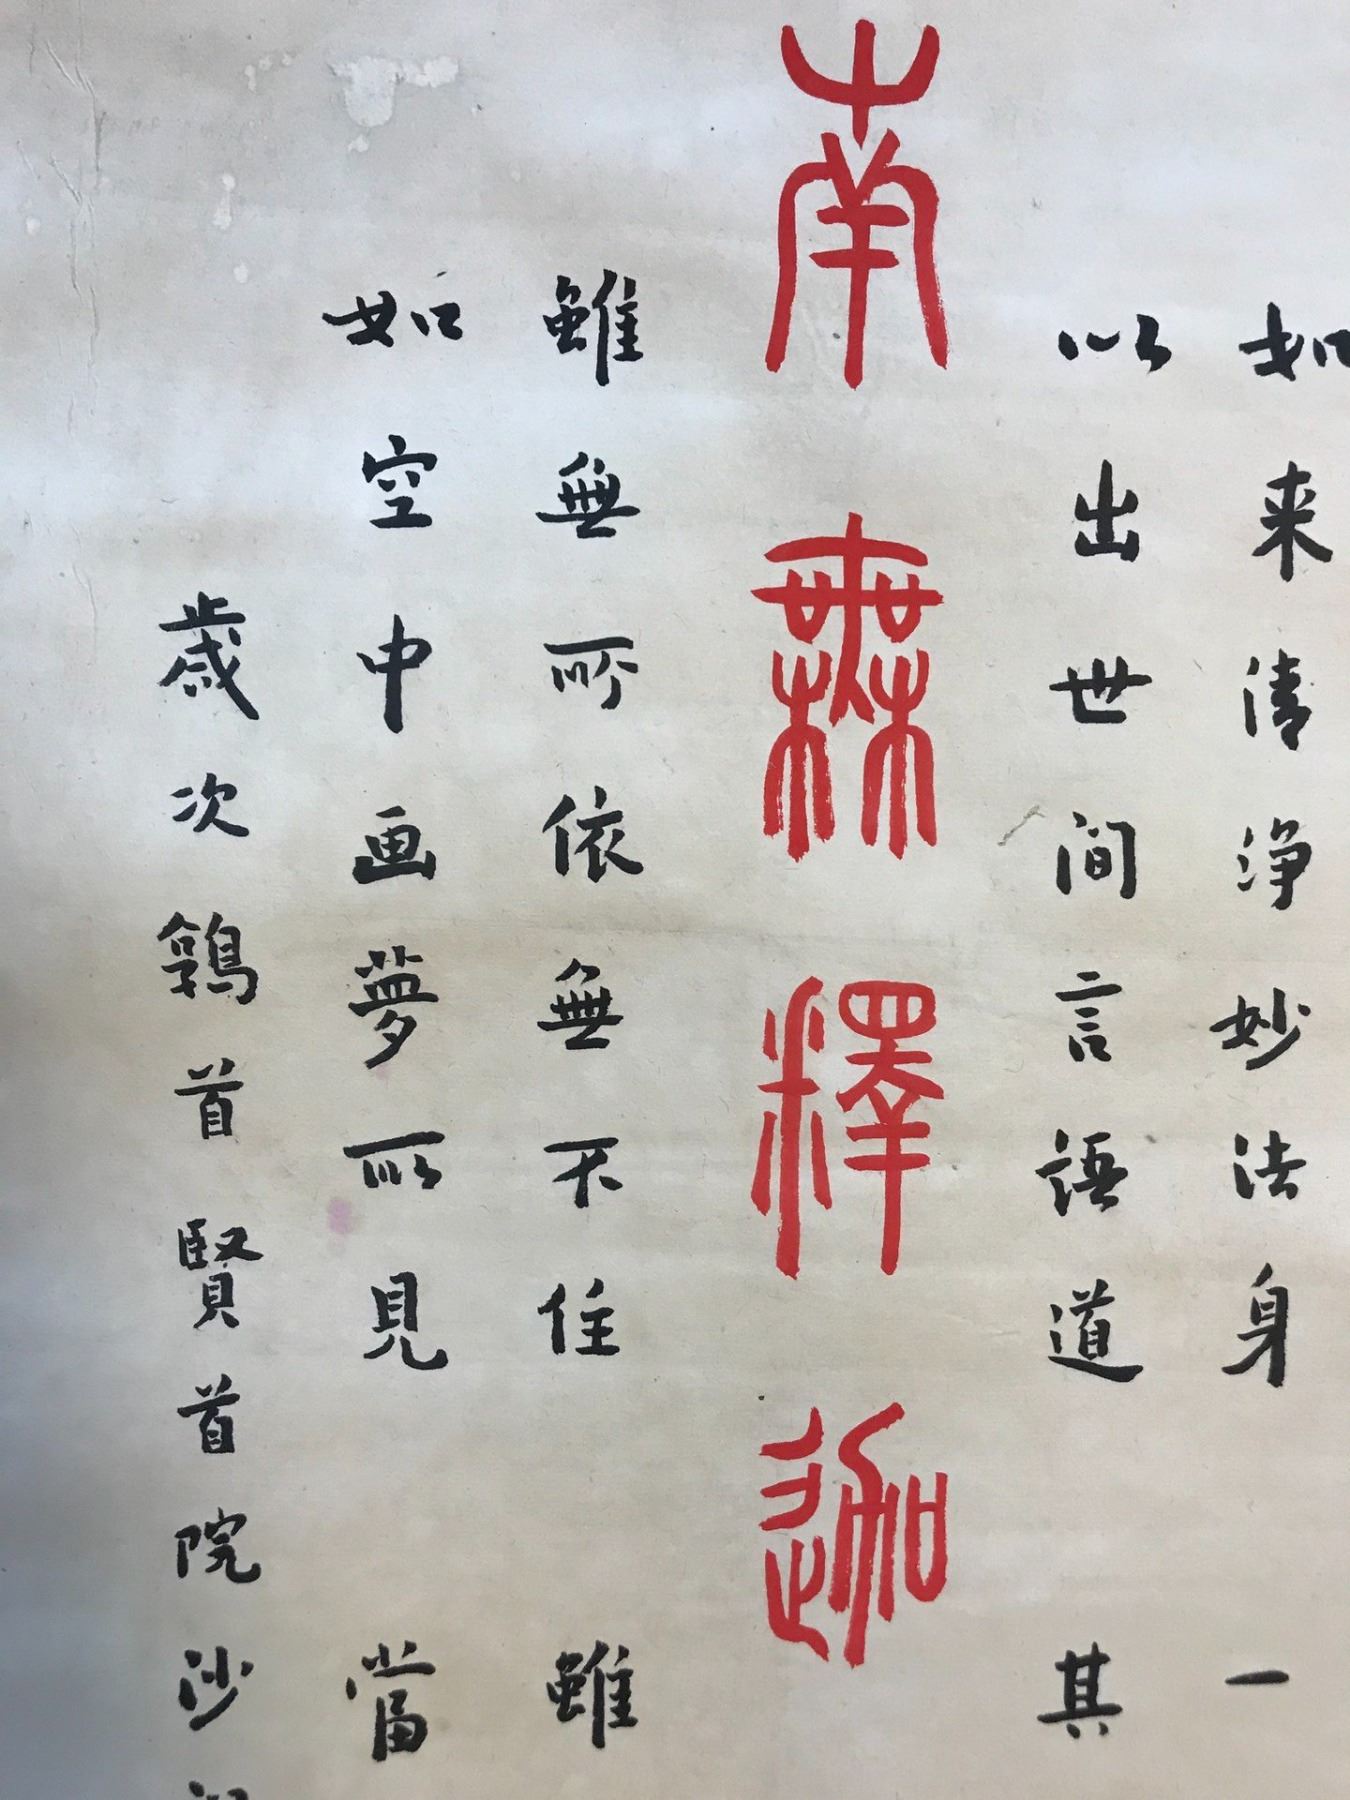 如来清净妙法身 一
以出世间言語道 其
南無釋迦
雖無所依無不住 雖
如空中画夢所見 當
歲次鶉首賢首院沙